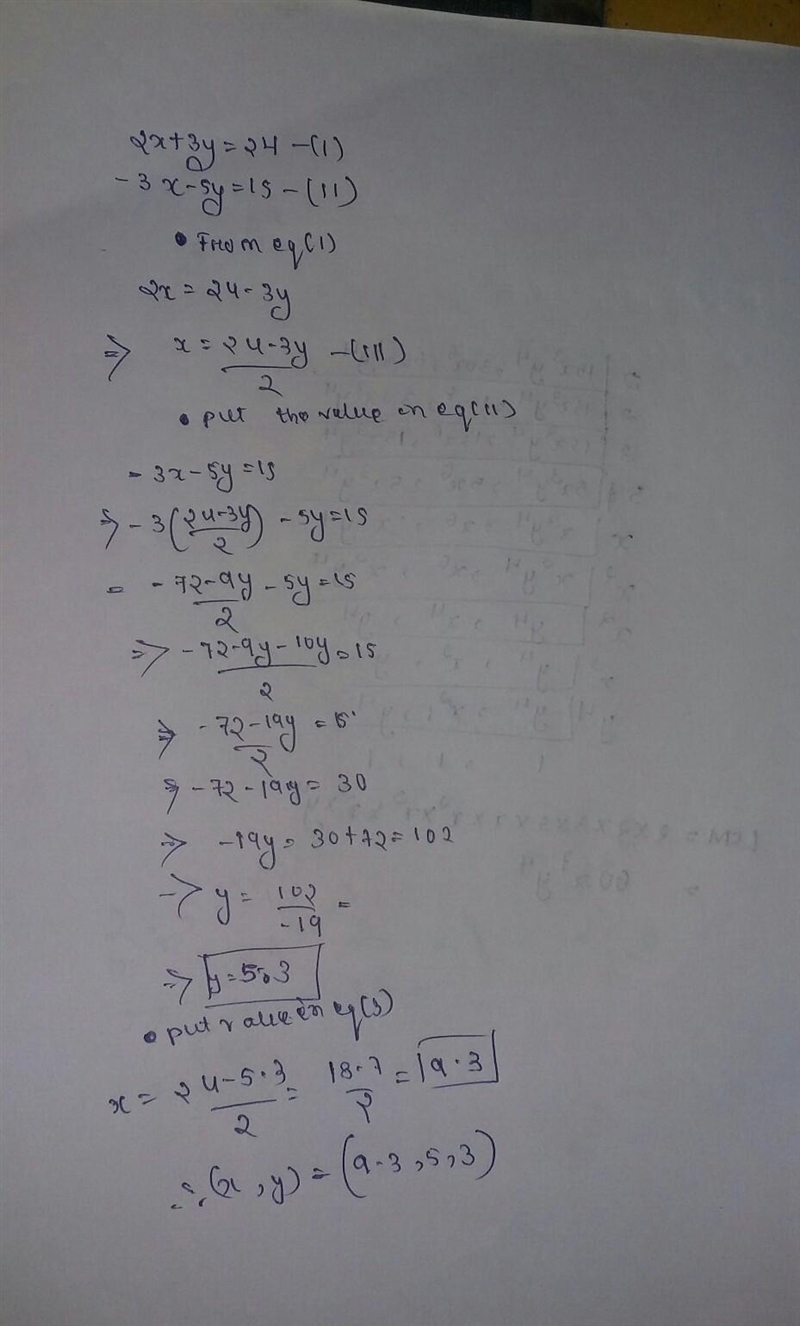 2x+3y=24 -(1)
-3x-5y=15 -(11)
• From eq(1)
2x = 24-3y
⇒ x = 24-3y/2 -(111)
• put the value in eq(11)
- 3x-5y=15
⇒ -3(24-3y/2) - 5y=15
= -72-9y/2 - 5y=15
⇒ -72-9y-10y/2 = 15
⇒ -72-19y/2 = 15
⇒ -72-19y = 30
⇒ -19y = 30+72=102
⇒ y = 102/-19 =
⇒ y=5.3
• put value in eq(3)
x = 24-5.3/2 = 18.7/2 = 9.3
∴ (x, y) = (9.3, 5.3)